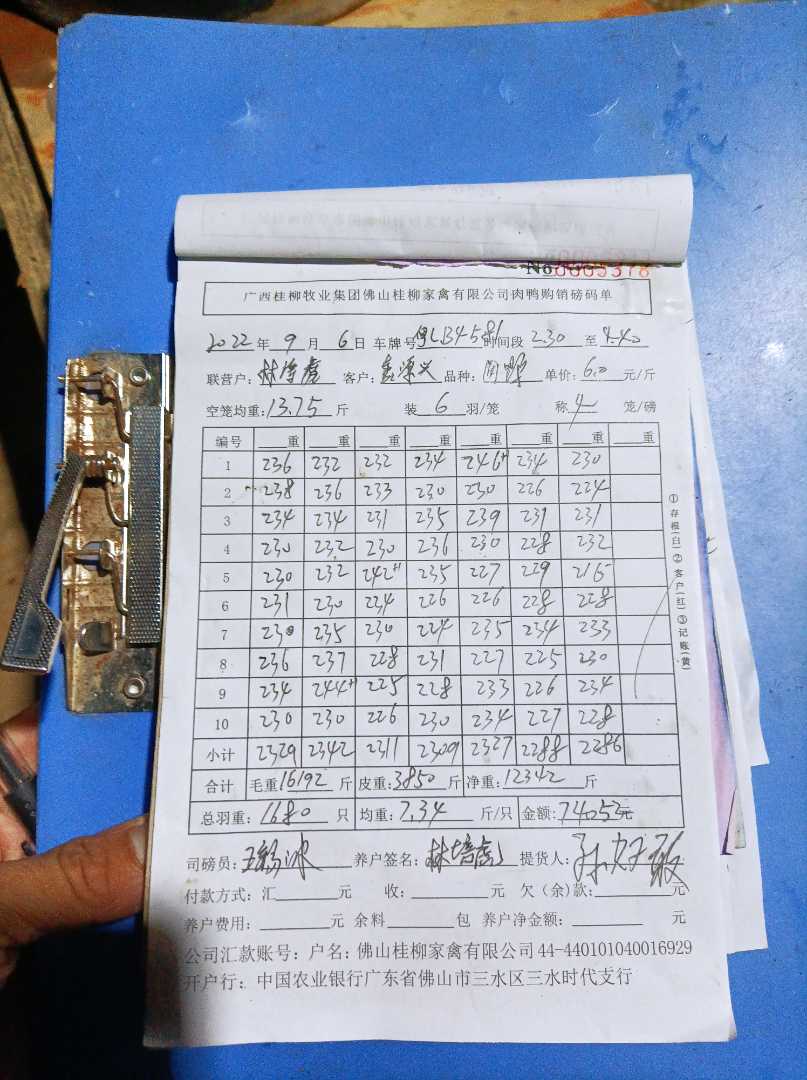 No 0005378
广西桂柳牧业集团佛山桂柳家禽有限公司肉鸭购销磅码单
2022 年 9 月 6 日 车牌号 时间段 2.30 至 4.40
联营户: 林培虎 客户: 鑫源兴 品种: 单价: 6.0 元/斤
空笼均重: 13.75 斤 装 6 羽/笼 称 4 笼/磅
编号 重 重 重 重 重 重 重 重
1 236 232 232 234 246+1 234 230
2 238 236 233 230 230 226 224
3 234 234 231 235 239 231 231
4 230 232 230 236 230 228 232
5 230 232 242+1 235 227 229 215
6 231 230 234 226 226 228 228
7 230 235 230 224 235 234 233
8 236 237 228 231 227 225 230
9 234 244+1 225 228 233 226 234
10 230 230 226 230 234 227 228
小计 2329 2342 2311 2309 2327 2288 2286
合计 毛重 16192 斤 皮重: 3850 斤 净重: 12342 斤
总羽重: 1680 只 均重: 7.34 斤/只 金额: 74053元
司磅员: 养户签名: 林培虎 提货人:
付款方式: 汇 元 收: 元 欠(余)款: 元
养户费用: 元 余料 包 养户净金额: 元
公司汇款账号: 户名: 佛山桂柳家禽有限公司 44-440101040016929
开户行: 中国农业银行广东省佛山市三水区三水时代支行
①存根(白)②客户(红)③记账(黄)